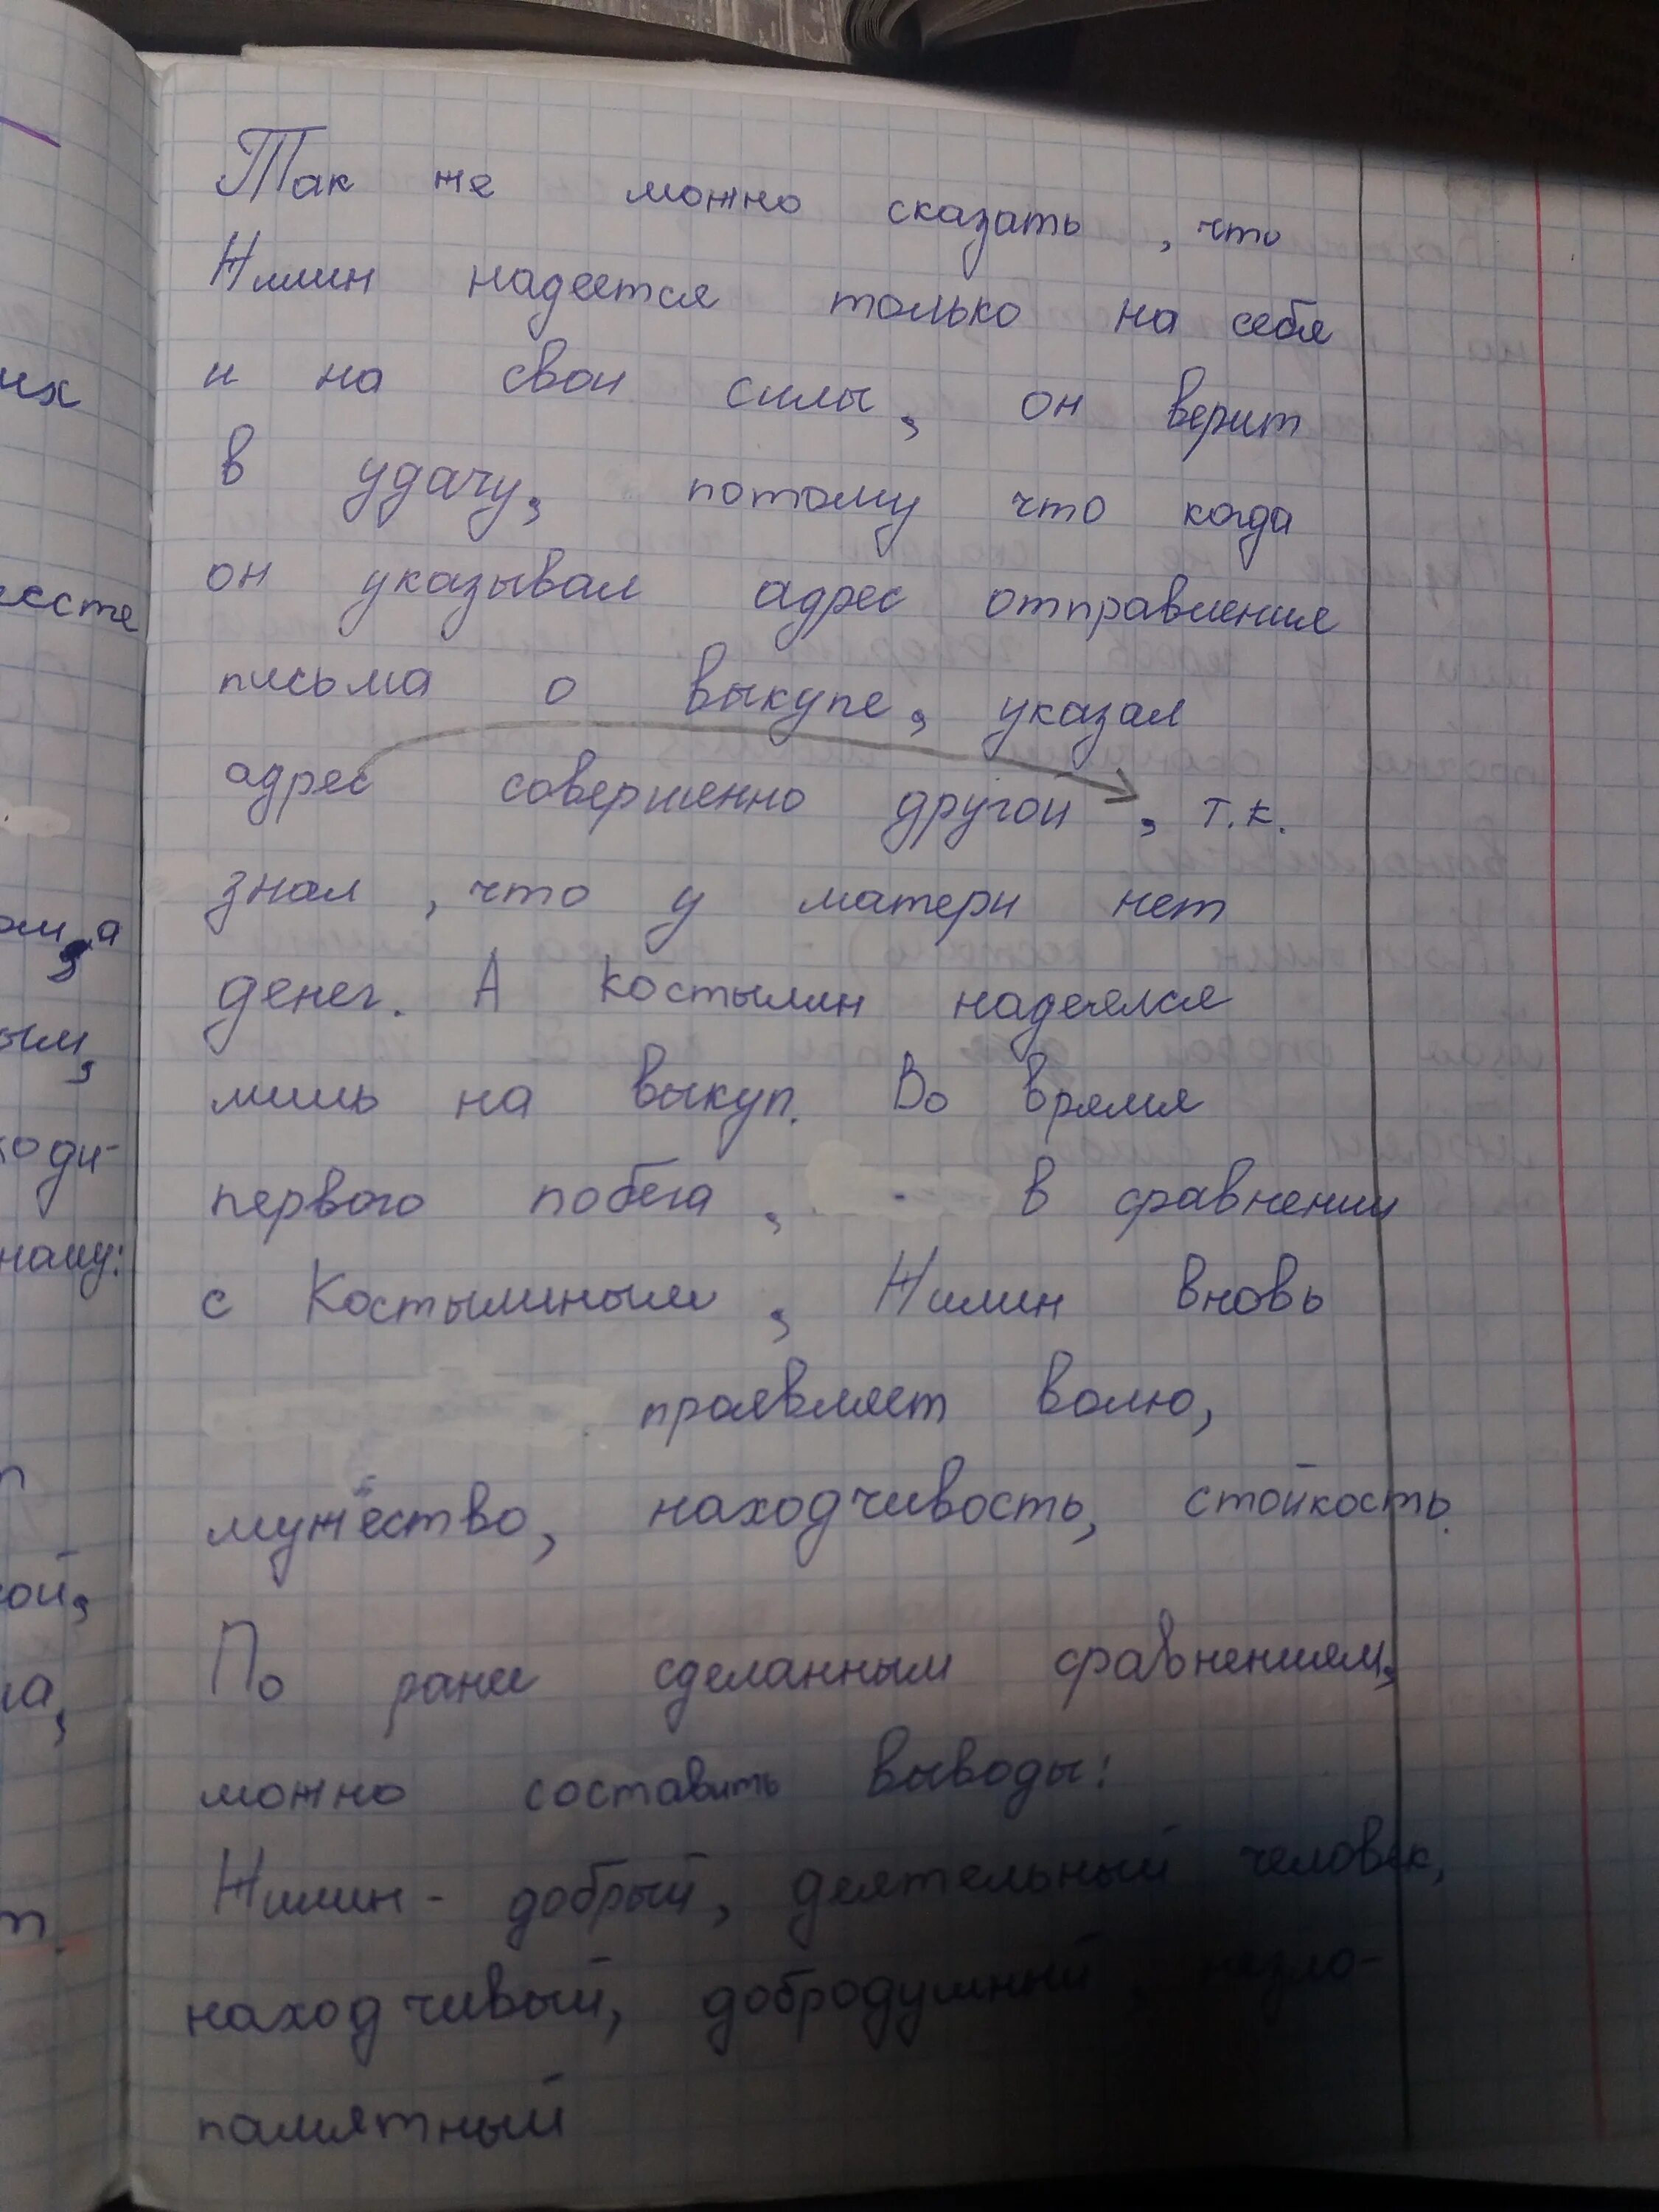 Так же можно сказать, что
Жилин надеется только на себя
и на свои силы, он верит
в удачу, потому что когда
он указывал адрес отправления
письма о выкупе, указал
адрес совершенно другой, т.к.
знал, что у матери нет
денег. А Костылин надеялся
лишь на выкуп. Во время
первого побега, в сравнении
с Костылиным, Жилин вновь
проявляет волю,
мужество, находчивость, стойкость.
По ранее сделанным сравнениям,
можно составить выводы:
Жилин - добрый, деятельный человек,
находчивый, добродушный, незло-
памятный
их
ой,